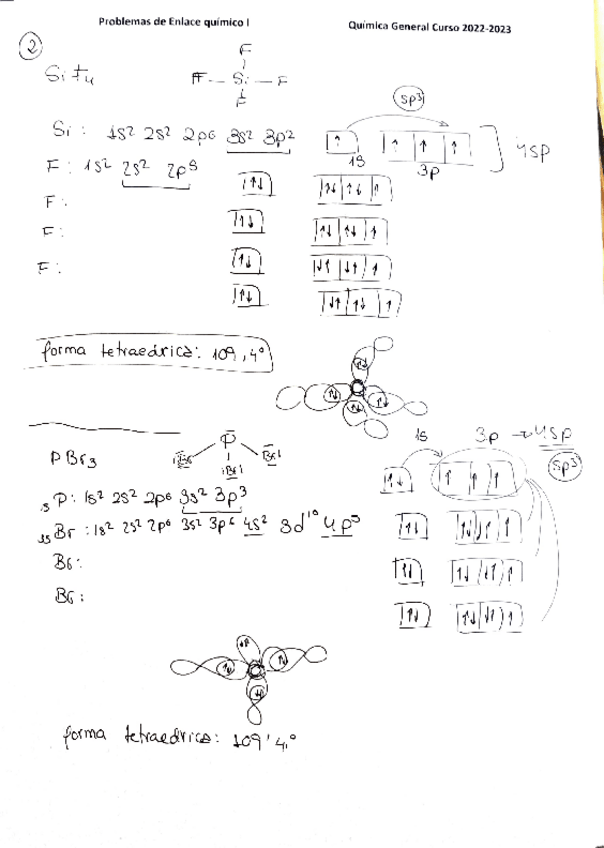 Problemas de Enlace químico I Química General Curso 2022-2023
2
SiF4
F
F — Si — F
F
sp3
Si: 1s2 2s2 2p6 3s2 3p2 1s 3p 4sp
F: 1s2 2s2 2p5
F:
F:
F:
forma tetraedrica: 109,4°
PBr3
P
Br Br Br
1s 3p → 4sp
sp3
P: 1s2 2s2 2p6 3s2 3p3
35Br: 1s2 2s2 2p6 3s2 3p6 4s2 3d10 4p5
Br:
Br:
forma tetraedrica: 109'4°